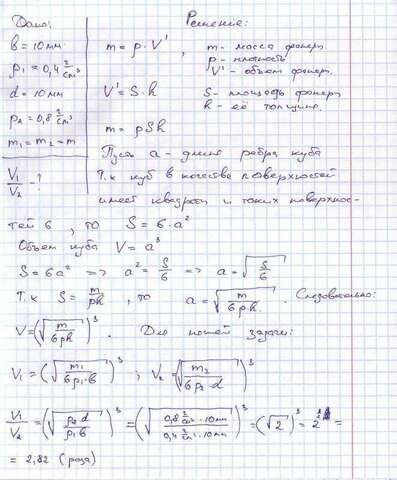 Дано:
Решение:
b = 10 мм
ρ₁ = 0,4 г/см³
d = 10 мм
ρ₂ = 0,8 г/см³
m₁ = m₂ = m
V₁/V₂ - ?
m = ρ · V' , m - масса фанеры
ρ - плотность
V' - объём фанеры.
V' = S · h
S - площадь фанеры
h - её толщина.
m = ρSh
Пусть a - длина ребра куба
Т.к куб в качестве поверхностей
имеет квадраты и таких поверхнос-
тей 6, то S = 6 · a²
Объем куба V = a³
S = 6a² => a² = S/6 => a = √(S/6)
Т.к S = m/ρh , то a = √(m/6ρh) . Следовательно:
V = (√(m/6ρh))³ . Для нашей задачи:
V₁ = (√(m₁/6ρ₁·b))³ ; V₂ = (√(m₂/6ρ₂·d))³
V₁/V₂ = (√(ρ₂·d/ρ₁·b))³ = (√(0,8 г/см³ · 10мм / 0,4 г/см³ · 10мм))³ = (√2)³ = 2^(3/2) =
= 2,82 (раза)